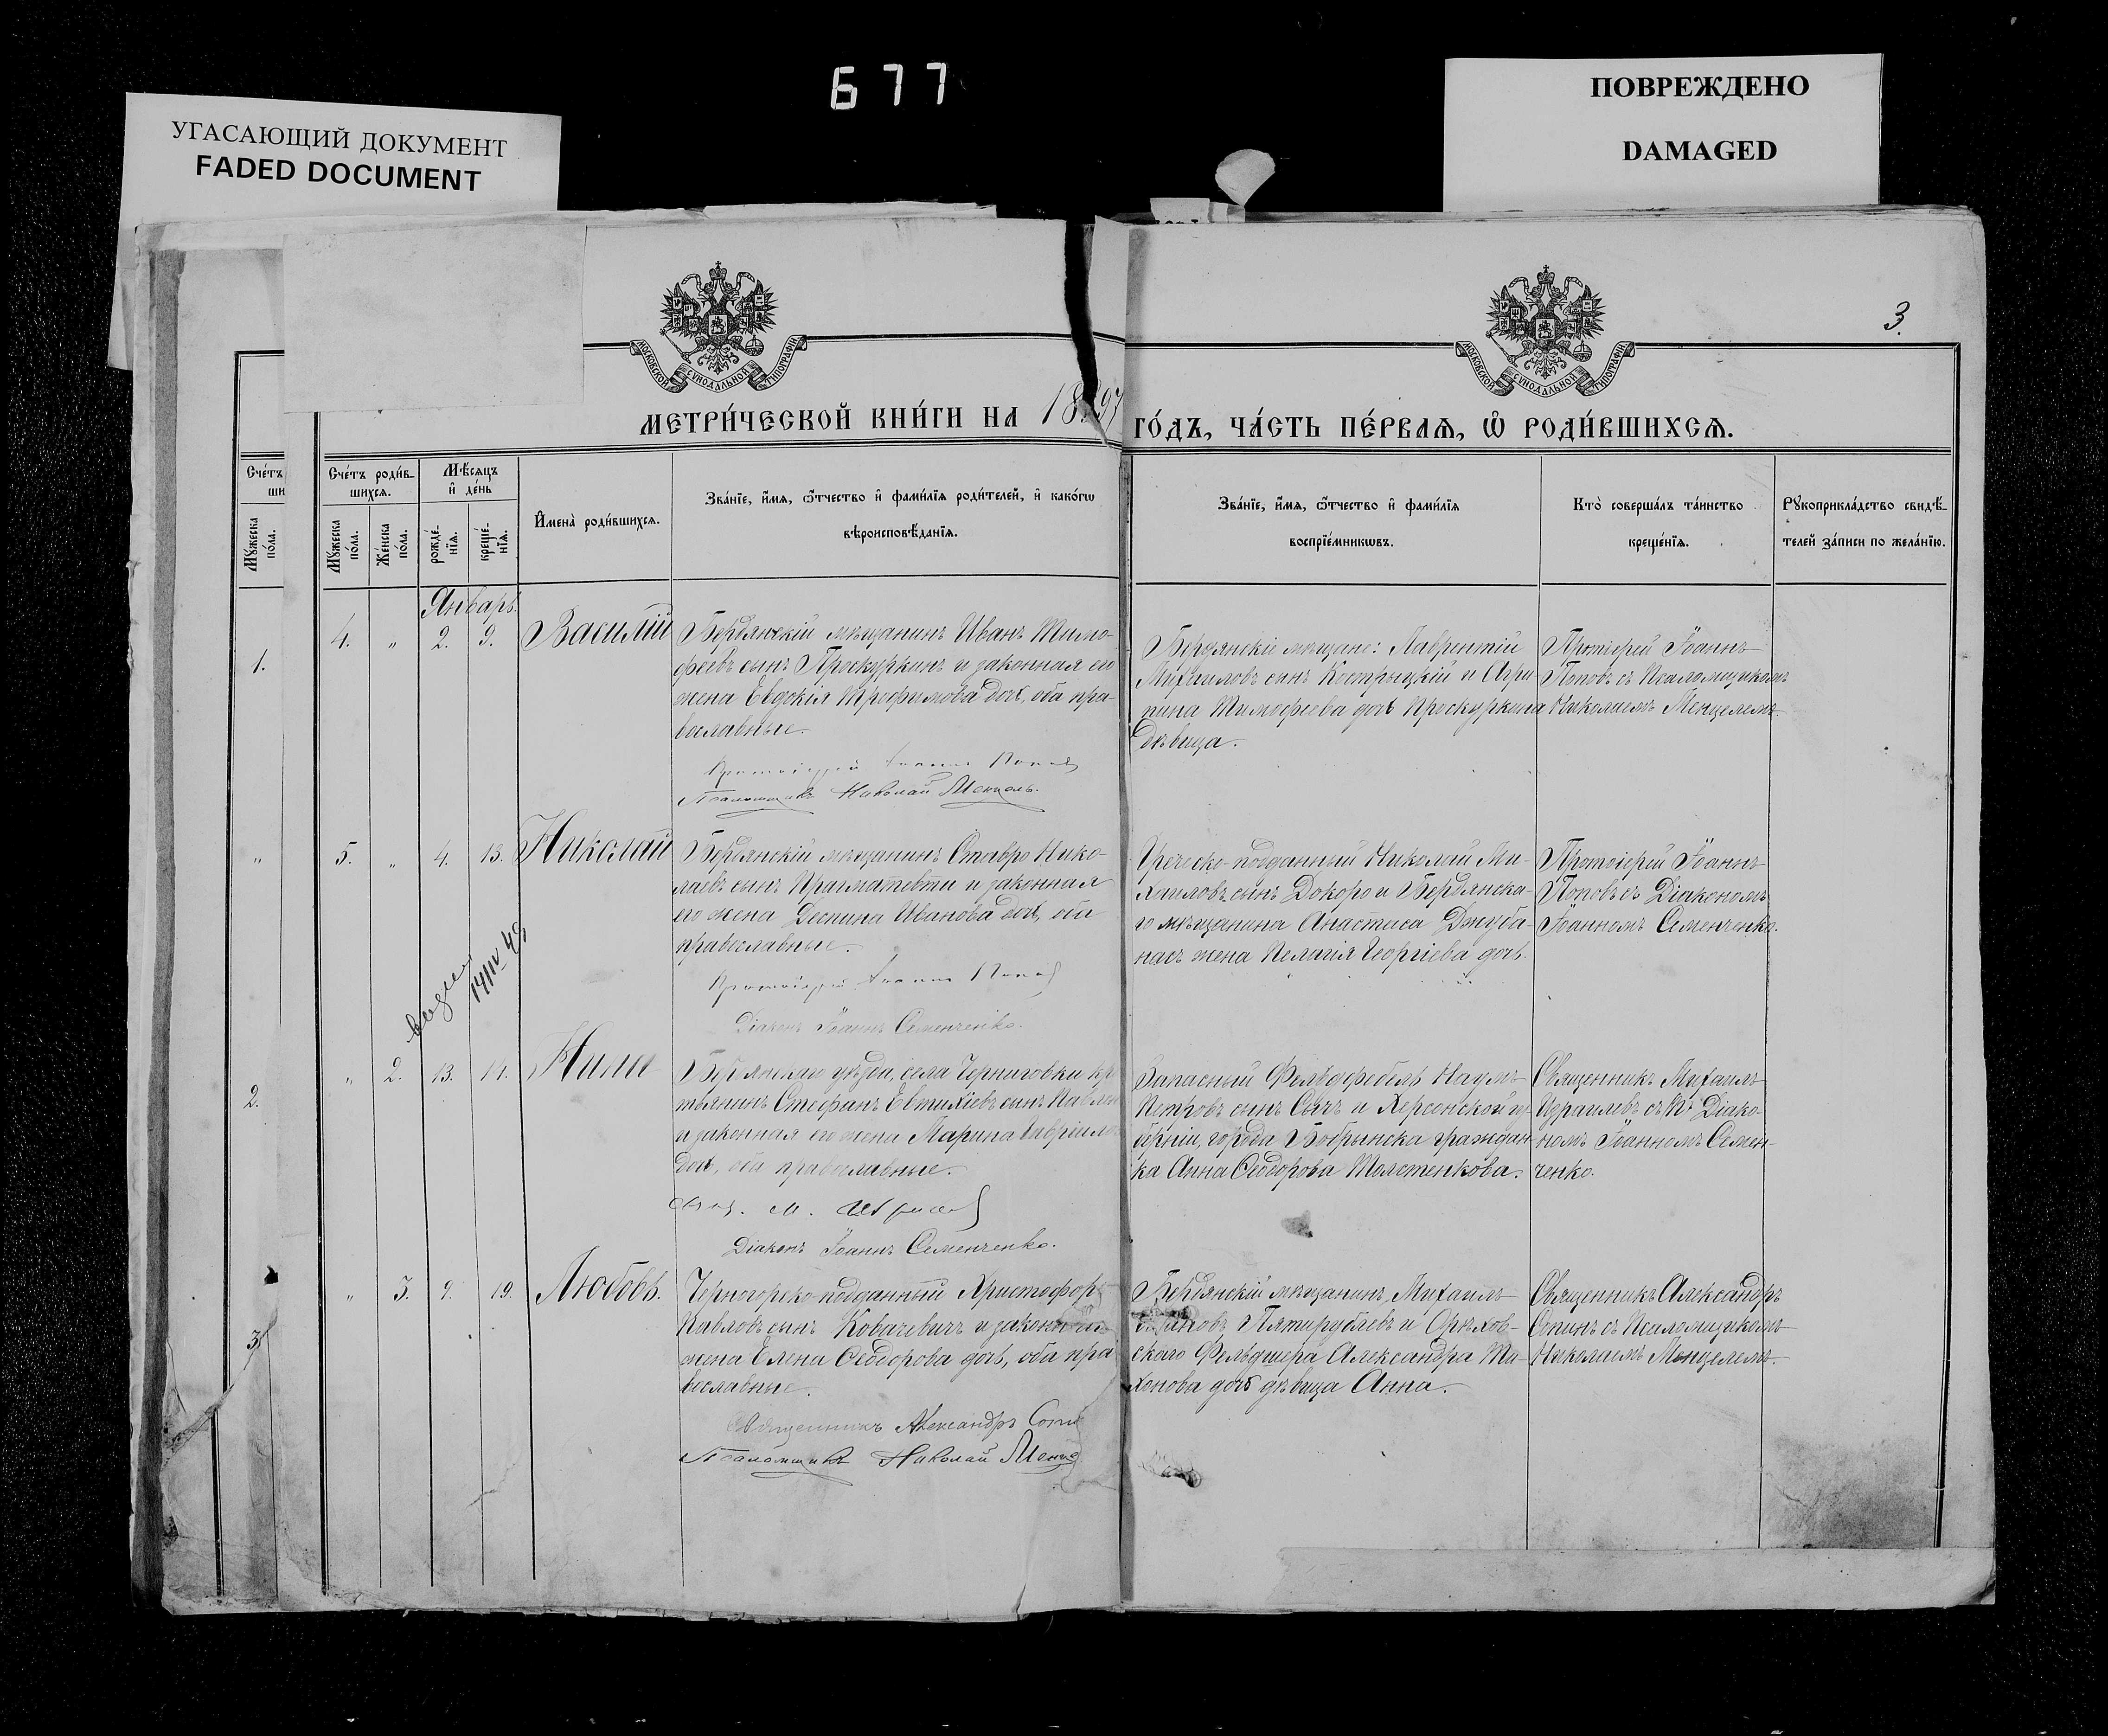 677
УГАСАЮЩИЙ ДОКУМЕНТ
FADED DOCUMENT
ПОВРЕЖДЕНО
DAMAGED
МОСКОВСКОЙ СѴНОДАЛЬНОЙ ТИПОГРАФІИ
МОСКОВСКОЙ СѴНОДАЛЬНОЙ ТИПОГРАФІИ
3.
МЕТРИ́ЧЕСКОЙ КНИ́ГИ НА 1897 ГО́ДЪ, ЧА́СТЬ ПЕ́РВАѦ, Ѡ҆ РОДИ́ВШИХСѦ.
Сче́тъ
ши
Мꙋжеска по́ла.
Сче́тъ роди́в-
шихсѧ.
Мꙋжеска по́ла.
Же́нска по́ла.
Мѣ́сѧцъ
и҆ де́нь
рожде́-
нїѧ.
креще́-
нїѧ.
И҆мена̀ роди́вшихсѧ.
Зва́нїе, и҆́мѧ, ѻ҆́тчество и҆ фами́лїѧ роди́телей, и҆ како́гѡ
вѣроисповѣ́данїѧ.
Зва́нїе, и҆́мѧ, ѻ҆́тчество и҆ фами́лїѧ
воспрїе́мникѡвъ.
Кто̀ соверша́лъ та́инство
креще́нїѧ.
Рꙋкоприкла́дство свидѣ́-
телей за́писи по жела́нїю.
Январь.
1.
4. " 2. 9. Василій
Бердянскій мѣщанинъ Иванъ Тимо-
феевъ сынъ Проскуркинъ и законная его
жена Евдокія Трофимова дочь, оба пра-
вославные.
Протоіерей Іоаннъ Поповъ
Псаломщикъ Николай Менцель.
Бердянскіе мѣщане: Лаврентій
Михаиловъ сынъ Кострыцкій и Агри
пина Тимофеева дочь Проскуркина
дѣвица.
Протоіерей Іоаннъ
Поповъ съ Псаломщикомъ
Николаемъ Менцелемъ.
" 5. " 4. 13. Николай
Бердянскій мѣщанинъ Ставро Нико-
лаевъ сынъ Прагматевти и законная
его жена Деспина Иванова дочь, оба
православные.
Протоіерей Іоаннъ Поповъ
Діаконъ Іоаннъ Семенченко.
Греческо-подданный Николай Ми-
хаиловъ сынъ Докоро и Бердянска-
го мѣщанина Анастаса Джуба-
насъ жена Пелагія Георгіева дочь.
Протоіерей Іоаннъ
Поповъ съ Діакономъ
Іоанномъ Семенченко.
14/IV 49
2.
" 2. 13. 14. Нина
Бердянскаго уѣзда, села Черниговки кр
тьянинъ Стефанъ Евтихіевъ сынъ
и законная его жена Марина Гавріило
дочь, оба православные.
Діаконъ Іоаннъ Семенченко.
Запасный Фельдфебель Наумъ
Петровъ сынъ Сычъ и Херсонской гу-
берніи, города Бобринска граждан-
ка Анна Ѳеодорова Толстенкова.
Священникъ Михаилъ
Израилевъ съ Діако-
номъ Іоанномъ Семен-
ченко.
3.
" 3. 9. 19. Любовь.
Черногорско-подданный Христофоръ
Павловъ сынъ Ковачевичъ и законная
жена Елена Ѳеодорова дочь, оба пра
вославные.
Священникъ Александръ
Псаломщикъ Николай Менце
Бердянскій мѣщанинъ Михаилъ
Пятирублевъ и Орѣхов-
скаго Фельдшера Александра Ти-
хонова дочь дѣвица Анна.
Священникъ Александръ
Сопинъ съ Псаломщикомъ
Николаемъ Менцелемъ.